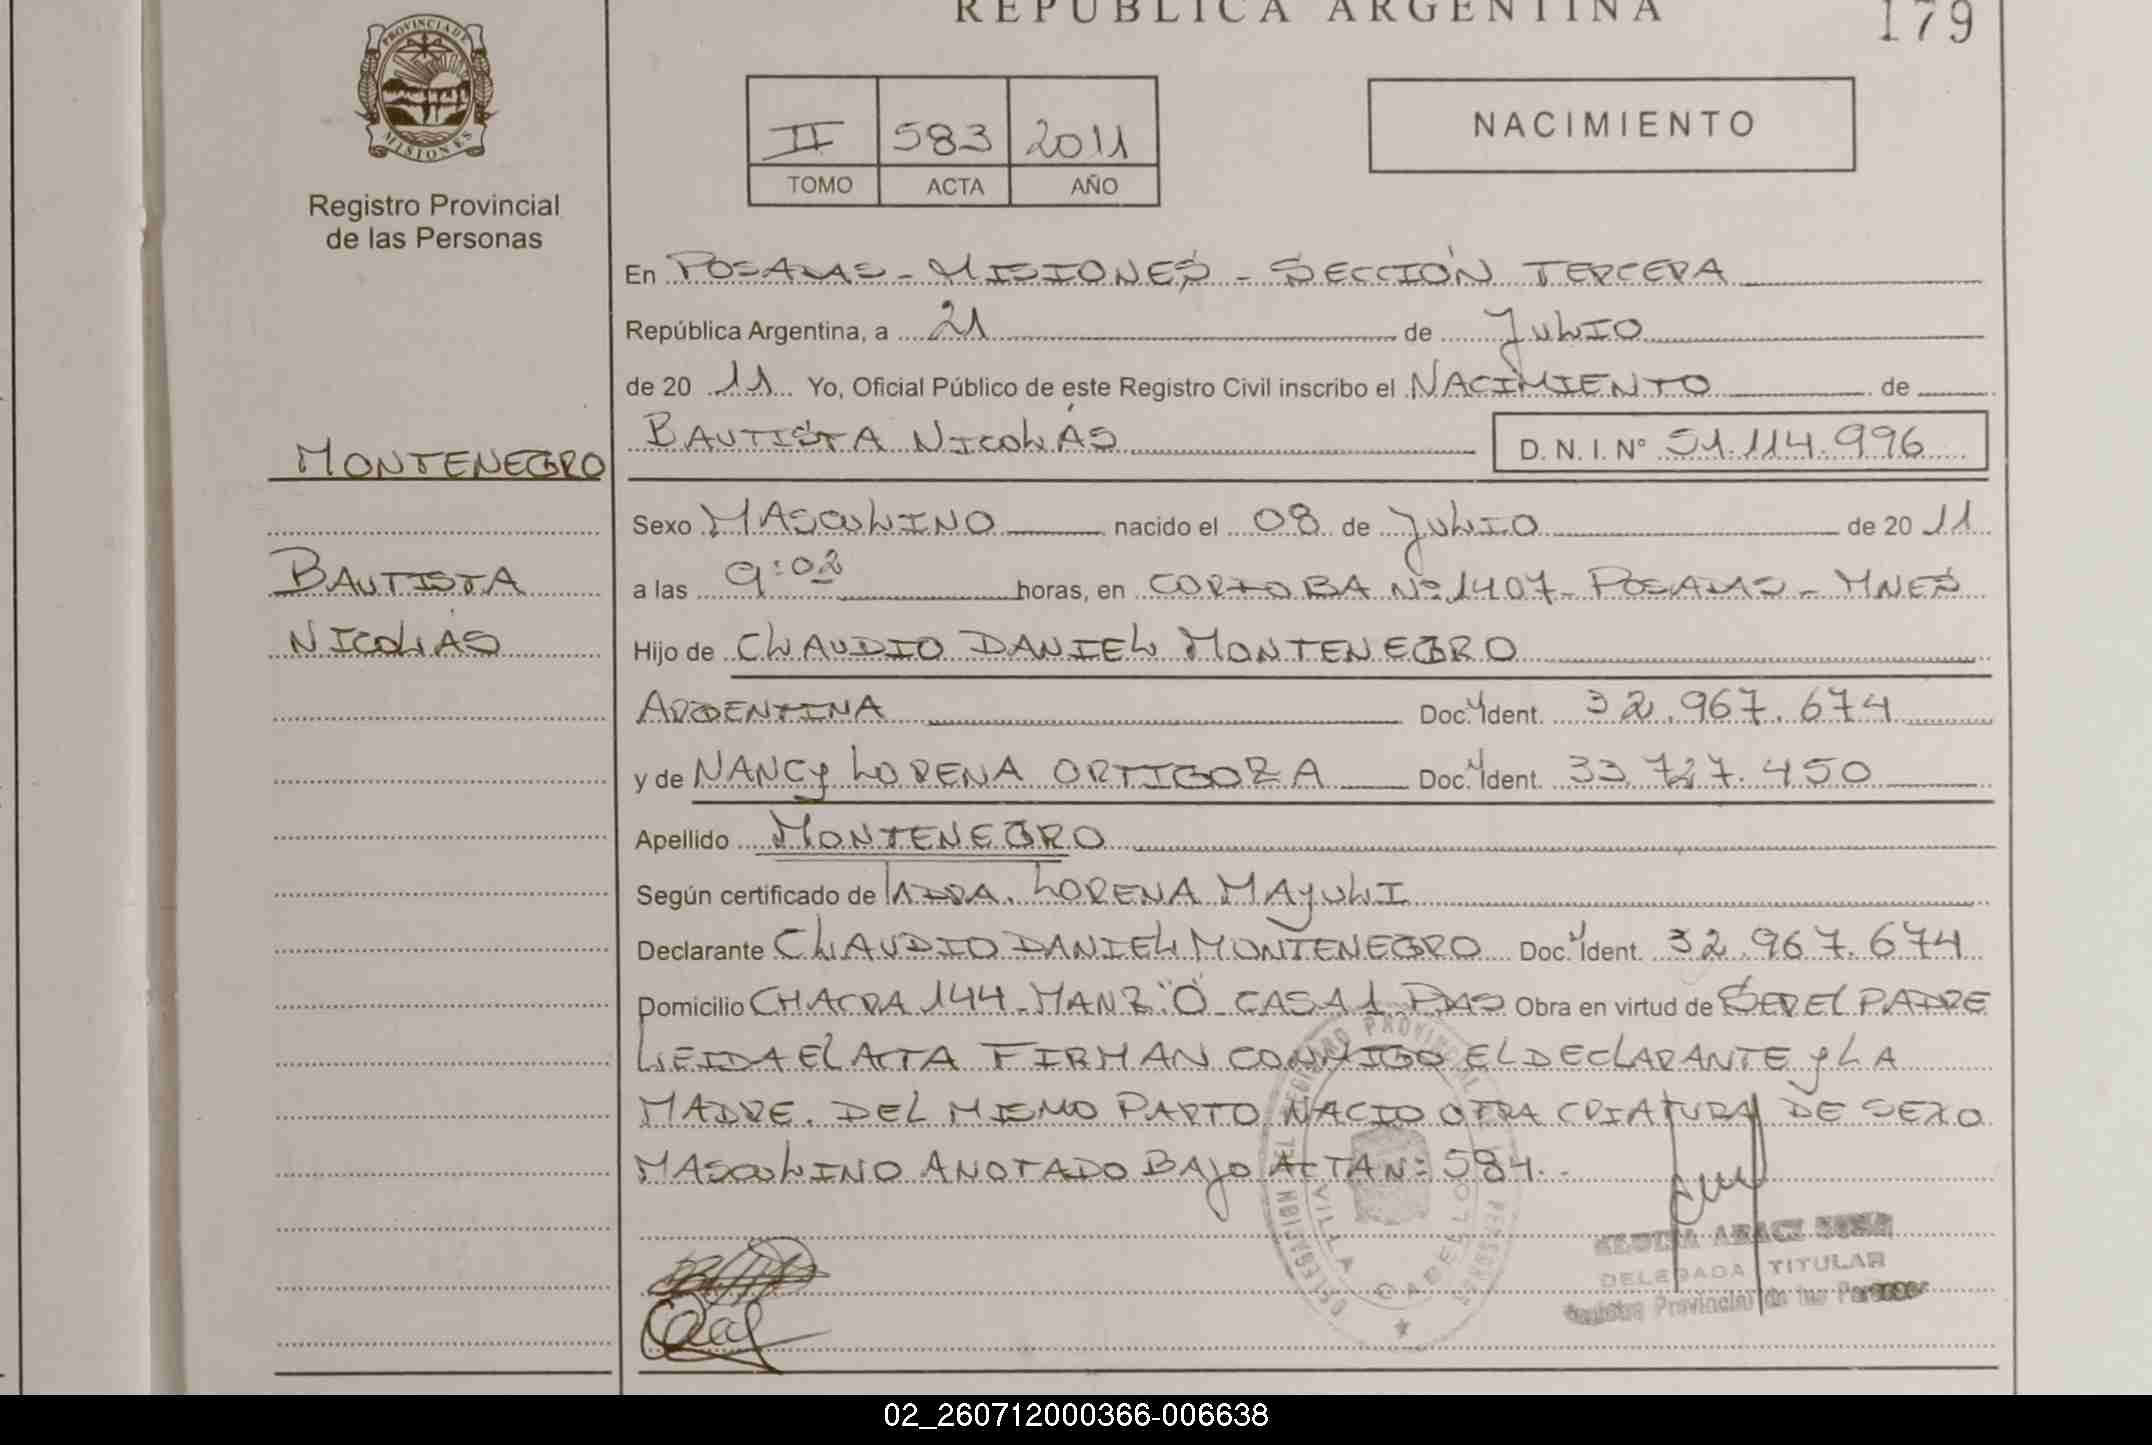 REPUBLICA ARGENTINA
179
PROVINCIA DE
MISIONES
Registro Provincial
de las Personas
II 583 2011
TOMO ACTA AÑO
NACIMIENTO
En POSADAS - MISIONES - SECCIÓN TERCERA
República Argentina, a 21 de JULIO
de 20 11 Yo, Oficial Público de este Registro Civil inscribo el NACIMIENTO de
MONTENEGRO
BAUTISTA NICOLÁS D. N. I. Nº 51.114.996
Sexo MASCULINO nacido el 08 de JULIO de 20 11
BAUTISTA
a las 9:02 horas, en CORDOBA Nº 1407 - POSADAS - MNES
NICOLÁS
Hijo de CLAUDIO DANIEL MONTENEGRO
ARGENTINA Doc. Ident. 32.967.674
y de NANCY LORENA ORTIGOZA Doc. Ident. 33.727.450
Apellido MONTENEGRO
Según certificado de LORENA MAYULI
Declarante CLAUDIO DANIEL MONTENEGRO Doc. Ident. 32.967.674
Domicilio CHACRA 144 - MANZ "O" - CASA 1 PDAS Obra en virtud de SER EL PADRE
LEIDA EL ACTA FIRMAN CONMIGO EL DECLARANTE Y LA
MADRE. DEL MISMO PARTO NACIO OTRA CRIATURA DE SEXO
MASCULINO ANOTADO BAJO ACTA Nº 584.-
REGISTRO PROVINCIAL DE LAS PERSONAS
DELEGACION
VILLA CABELLO
DELEGADA TITULAR
Registro Provincial de las Personas
02_260712000366-006638